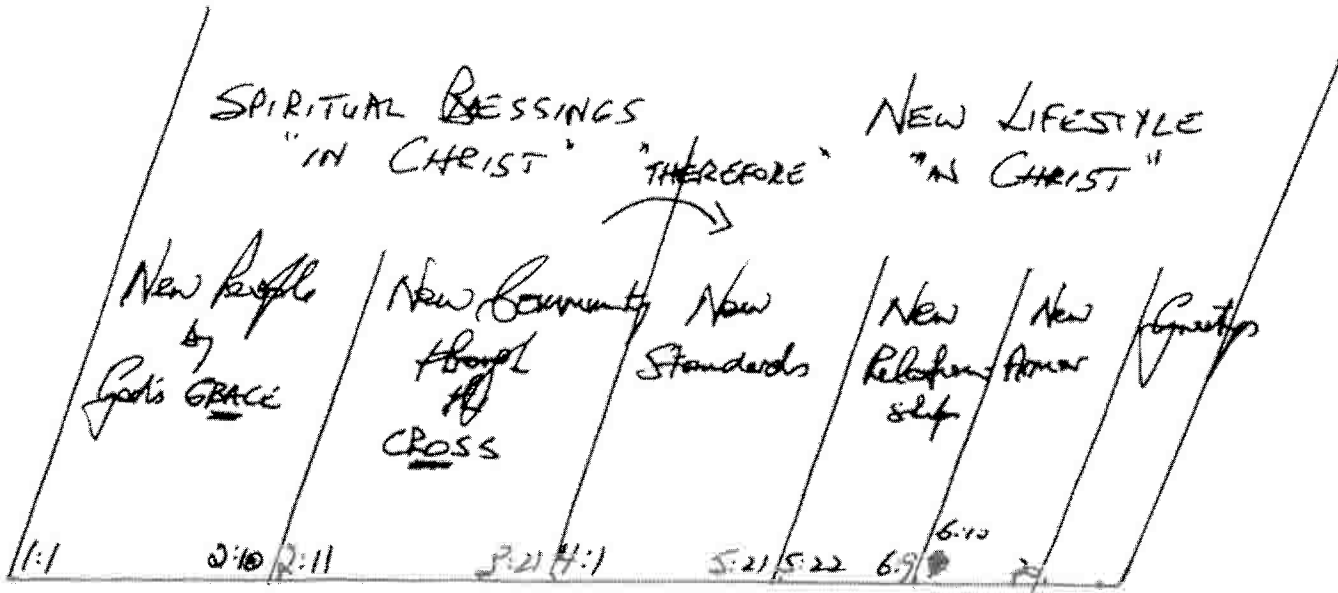 SPIRITUAL BLESSINGS
"IN CHRIST"
"THEREFORE"
NEW LIFESTYLE
"IN CHRIST"
New People
by
God's GRACE
New Community
through
the
CROSS
New
Standards
New
Relation
ship
New
Armor
Greetings
1:1
2:10
2:11
3:21
4:1
5:21
5:22
6:9
6:10